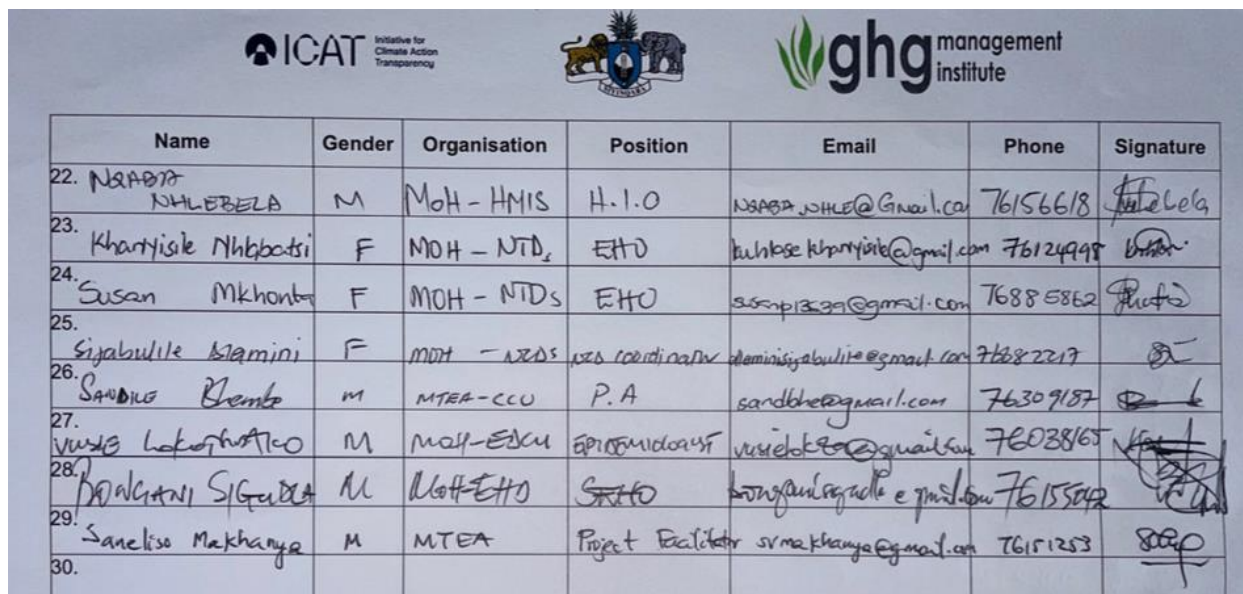 ICAT Initiative for
Climate Action
Transparency
SIYINQABA
ghg management
institute
Name Gender Organisation Position Email Phone Signature
22. NQABA
NHLEBELA M MoH - HMIS H.I.O NQABA.NHLE@Gmail.co 76156618
23.
Khanyisile F MOH - NTDs EHO @gmail.com 76124998
24.
Susan Mkhonta F MOH - NTDs EHO @gmail.com 76885862
25.
Siyabulile Dlamini F MOH coordinator dlaminisiyabulile@gmail.com 76682217
26.
SANDILE Bhembe M MTEA-CCU P.A sandbhe@gmail.com 76309187
27.
VUSIE M MOH EPIDEMIOLOGIST 76038165
28.
BONGANI SIGUDLA M MOH-EHO bonganisigudla@gmail.com 76155042
29.
Saneliso Makhanya M MTEA Project Facilitator svmakhanya@gmail.com 76151253
30.